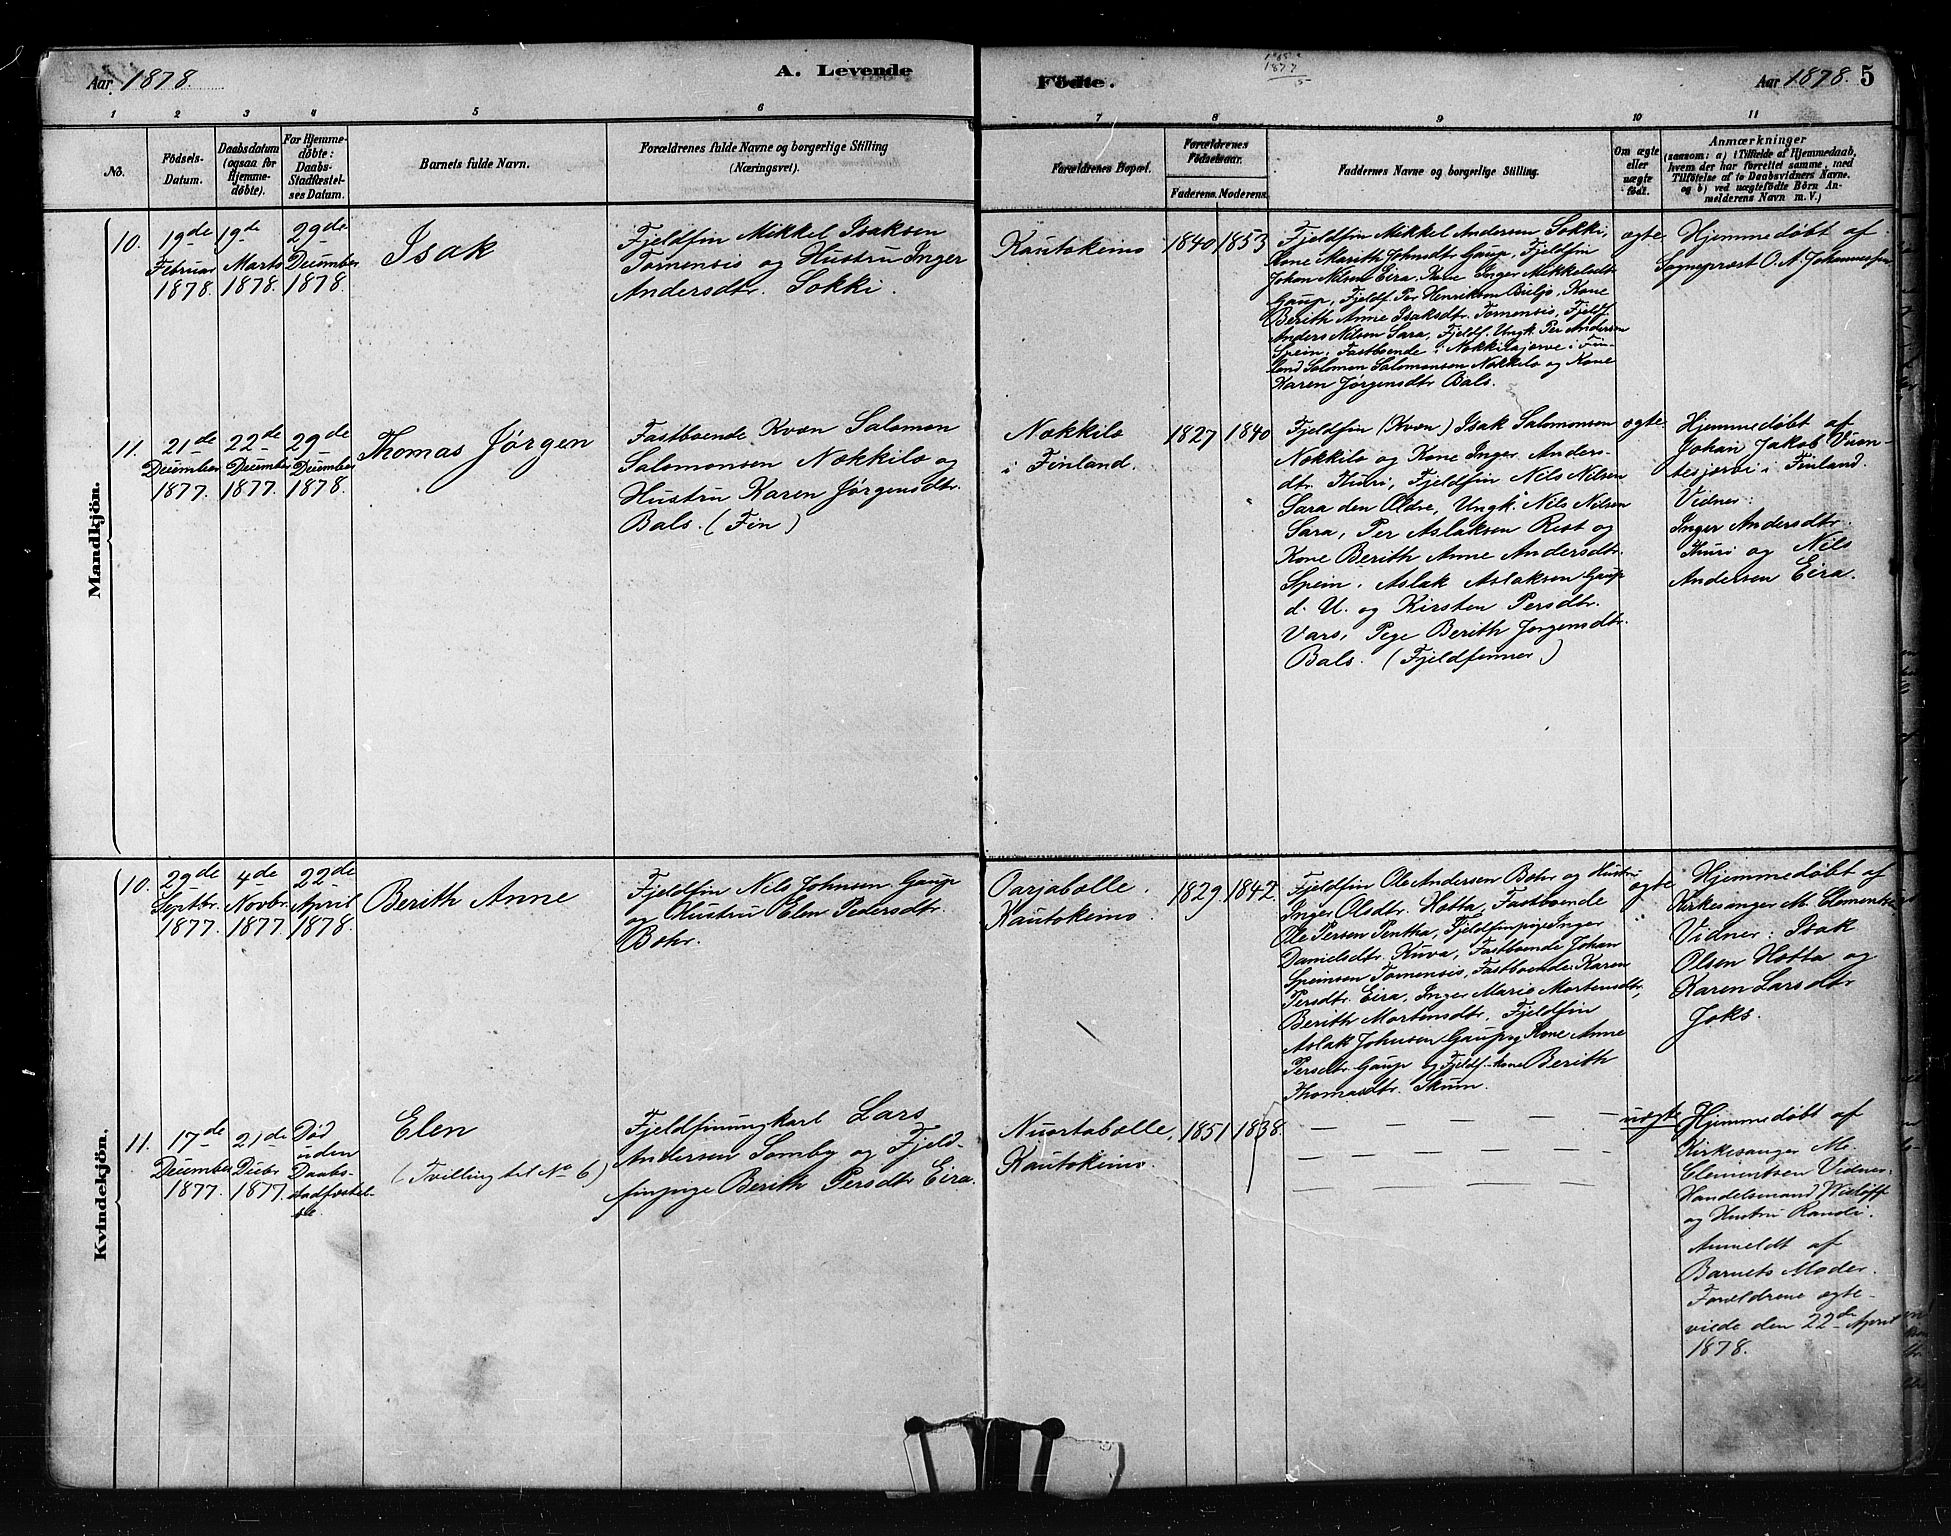 Aar 1878.
A. Levende
Födte.
1877
5
Aar 1878. 5
1 2 3 4 5 6 7 8 9 10 11
No.
Födsels-
Datum.
Daabsdatum
(ogsaa for
Hjemme-
døbte).
For Hjemme-
døbte:
Daabs-
Stadfæstel-
ses Datum.
Barnets fulde Navn.
Forældrenes fulde Navne og borgerlige Stilling
(Næringsvei).
Forældrenes Bopæl.
Forældrenes
Födselsaar.
Faderens. Moderens.
Faddernes Navne og borgerlige Stilling.
Om ægte
eller
uægte
födt.
Anmærkninger
(saasom: a) i Tilfælde af Hjemmedaab,
hvem der har forrettet samme, med
Tilföielse af to Daabsvidners Navne.
og b) ved uægtefödte Börn An-
melderens Navn m. V.)
Mandkjön.
10.
19de
Februar
1878.
19de
Marts
1878.
29de
December
1878.
Isak
Fjeldfin Mikkel Isaksen
Tornensis og Hustru Inger
Andersdtr. Sokki.
Kautokeino
1840 1853
Fjeldfin Mikkel Andersen Sokki,
Kone Marith Johnsdtr Gaup, Fjeldfin
Johan Nilsen Eira, Kone Inger Mikkelsdtr
Gaup, Fjeldf. Per Henriksen Buljo, Kone
Berith Anne Isaksdtr. Tornensis, Fjeldf.
Anders Nilsen Sara, Fjeldf. Ungk. Per Andersen
Spein, Fastboende i Nokkilajerve i Fin-
land Salomon Salomonsen Nokkila og Kone
Karen Jørgensdtr Bals.
ægte
Hjemmedøbt af
Sognepræst O. A. Johannessen
11.
21de
December
1877.
22de
December
1877.
29de
December
1878.
Thomas Jørgen
Fastboende Kvæn Salomon
Salomonsen Nokkila og
Hustru Karen Jørgensdtr.
Bals. (Fin)
Nokkila
i Finland.
1827 1840
Fjeldfin (Kvæn) Isak Salomonsen
Nokkila og Kone Inger Anders-
dtr. Thuri, Fjeldfin Nils Nilsen
Sara den Ældre, Ungk. Nils Nilsen
Sara, Per Aslaksen Rist og
Kone Berith Anne Andersdtr.
Spein, Aslak Aslaksen Gaup
d. U. og Kirsten Persdtr.
Vars, Pige Berith Jørgensdtr.
Bals. (Fjeldfinner)
ægte
Hjemmedøbt af
Johan Jakob Vuon-
tesjærvi i Finland.
Vidner:
Inger Andersdtr.
Thuri og Nils
Andersen Eira.
Kvindekjön.
10.
29de
Septbr.
1877.
4de
Novbr.
1877.
22de
April
1878.
Berith Anne
Fjeldfin Nils Johnsen Gaup
og Hustru Elen Pedersdtr.
Bohr.
Oarjabælle.
Kautokeino
1829 1842
Fjeldfin Ole Andersen Bohr og Hustru
Inger Olsdtr. Hætta, Fastboende
Ole Persen Pentha, Fjeldfinpige Inger
Danielsdtr. Kuva, Fastboende Johan
Speinsen Tornensis, Fastboende Karen
Persdtr. Eira, Inger Marie Mortensdtr,
Berith Mortensdtr, Fjeldfin
Aslak Johnsen Gaup og Kone Anne
Persdtr. Gaup og Fjeldf.-kone Berith
Thomasdtr. Skum.
ægte
Hjemmedøbt af
Kirkesanger M. Clementsen
Vidner: Isak
Olsen Hætta og
Karen Larsdtr
Joks.
11.
17de
December
1877.
21de
Decbr
1877.
Død
uden
Daabs-
stadfæstel-
se.
Elen
(Tvilling til No 6)
Fjeldfinungkarl Lars
Andersen Somby og Fjeld-
finpige Berith Persdtr Eira.
Nuortabælle,
Kautokeino.
1851 1838.
uægte
Hjemmedøbt af
Kirkesanger M.
Clementsen Vidner:
Handelsmand Wisløff
og Hustru Randi.
Anmeldt af
Barnets Moder.
Forældrene ægte-
viede den 22de April
1878.